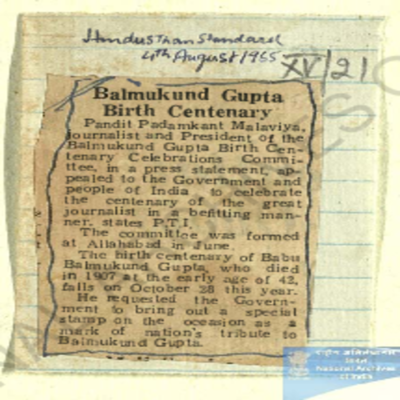 Hindusthan Standard
4th August 1965
XV/21
Balmukund Gupta
Birth Centenary
Pandit Padamkant Malaviya,
journalist and President of the
Balmukund Gupta Birth Cen-
tenary Celebrations Commi-
ttee, in a press statement, ap-
pealed to the Government and
people of India to celebrate
the centenary of the great
journalist in a befitting man-
ner, states P.T.I.
The committee was formed
at Allahabad in June.
The birth centenary of Babu
Balmukund Gupta, who died
in 1907 at the early age of 42,
falls on October 28 this year.
He requested the Govern-
ment to bring out a special
stamp on the occasion as a
mark of nation's tribute to
Balmukund Gupta.
National Archives